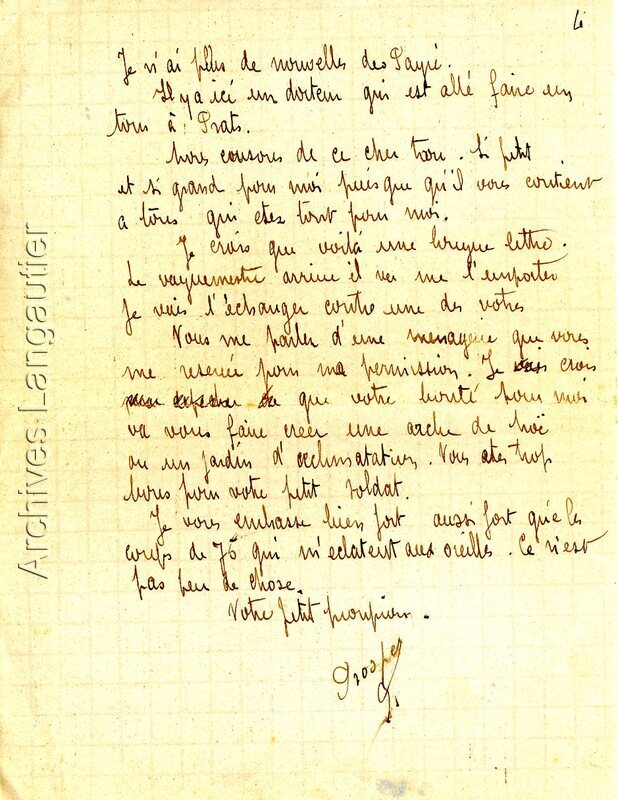 4
Je n'ai plus de nouvelles des Payré.
Il y a ici un docteur qui est allé faire un
tour à Prats.
Nous causons de ce cher trou. Si petit
et si grand pour moi puisque qu'il vous contient
a tous qui etes tout pour moi.
Je crois que voilà une longue lettre.
Le vaguemestre arrive il va me l'emporter
Je vais l'échanger contre une des votres
Vous me parler d'une menagerie que vous
me reservée pour ma permission. Je crois
que votre bonté pour moi
va vous faire creer une arche de Noë
ou un jardin d'acclimatation. Vous etes trop
bons pour votre petit soldat.
Je vous embrasse bien fort aussi fort que les
coups de 75 qui m'eclatent aux oreilles. Ce n'est
pas peu de chose.
Votre petit pioupiou.
Prosper
Archives Langautier